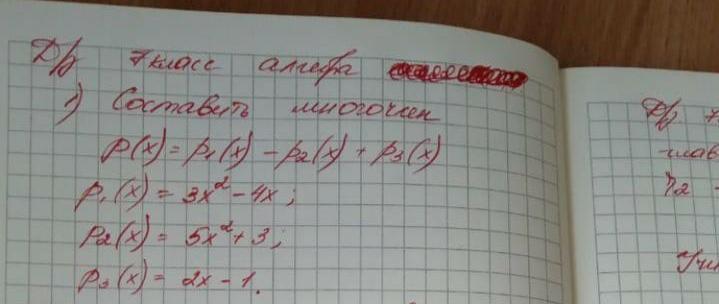 Д/р 7 класс алгебра
1) Составить многочлен
p(x) = p₁(x) - p₂(x) + p₃(x)
p₁(x) = 3x² - 4x;
p₂(x) = 5x² + 3;
p₃(x) = 2x - 1.
Д/р 7
глав